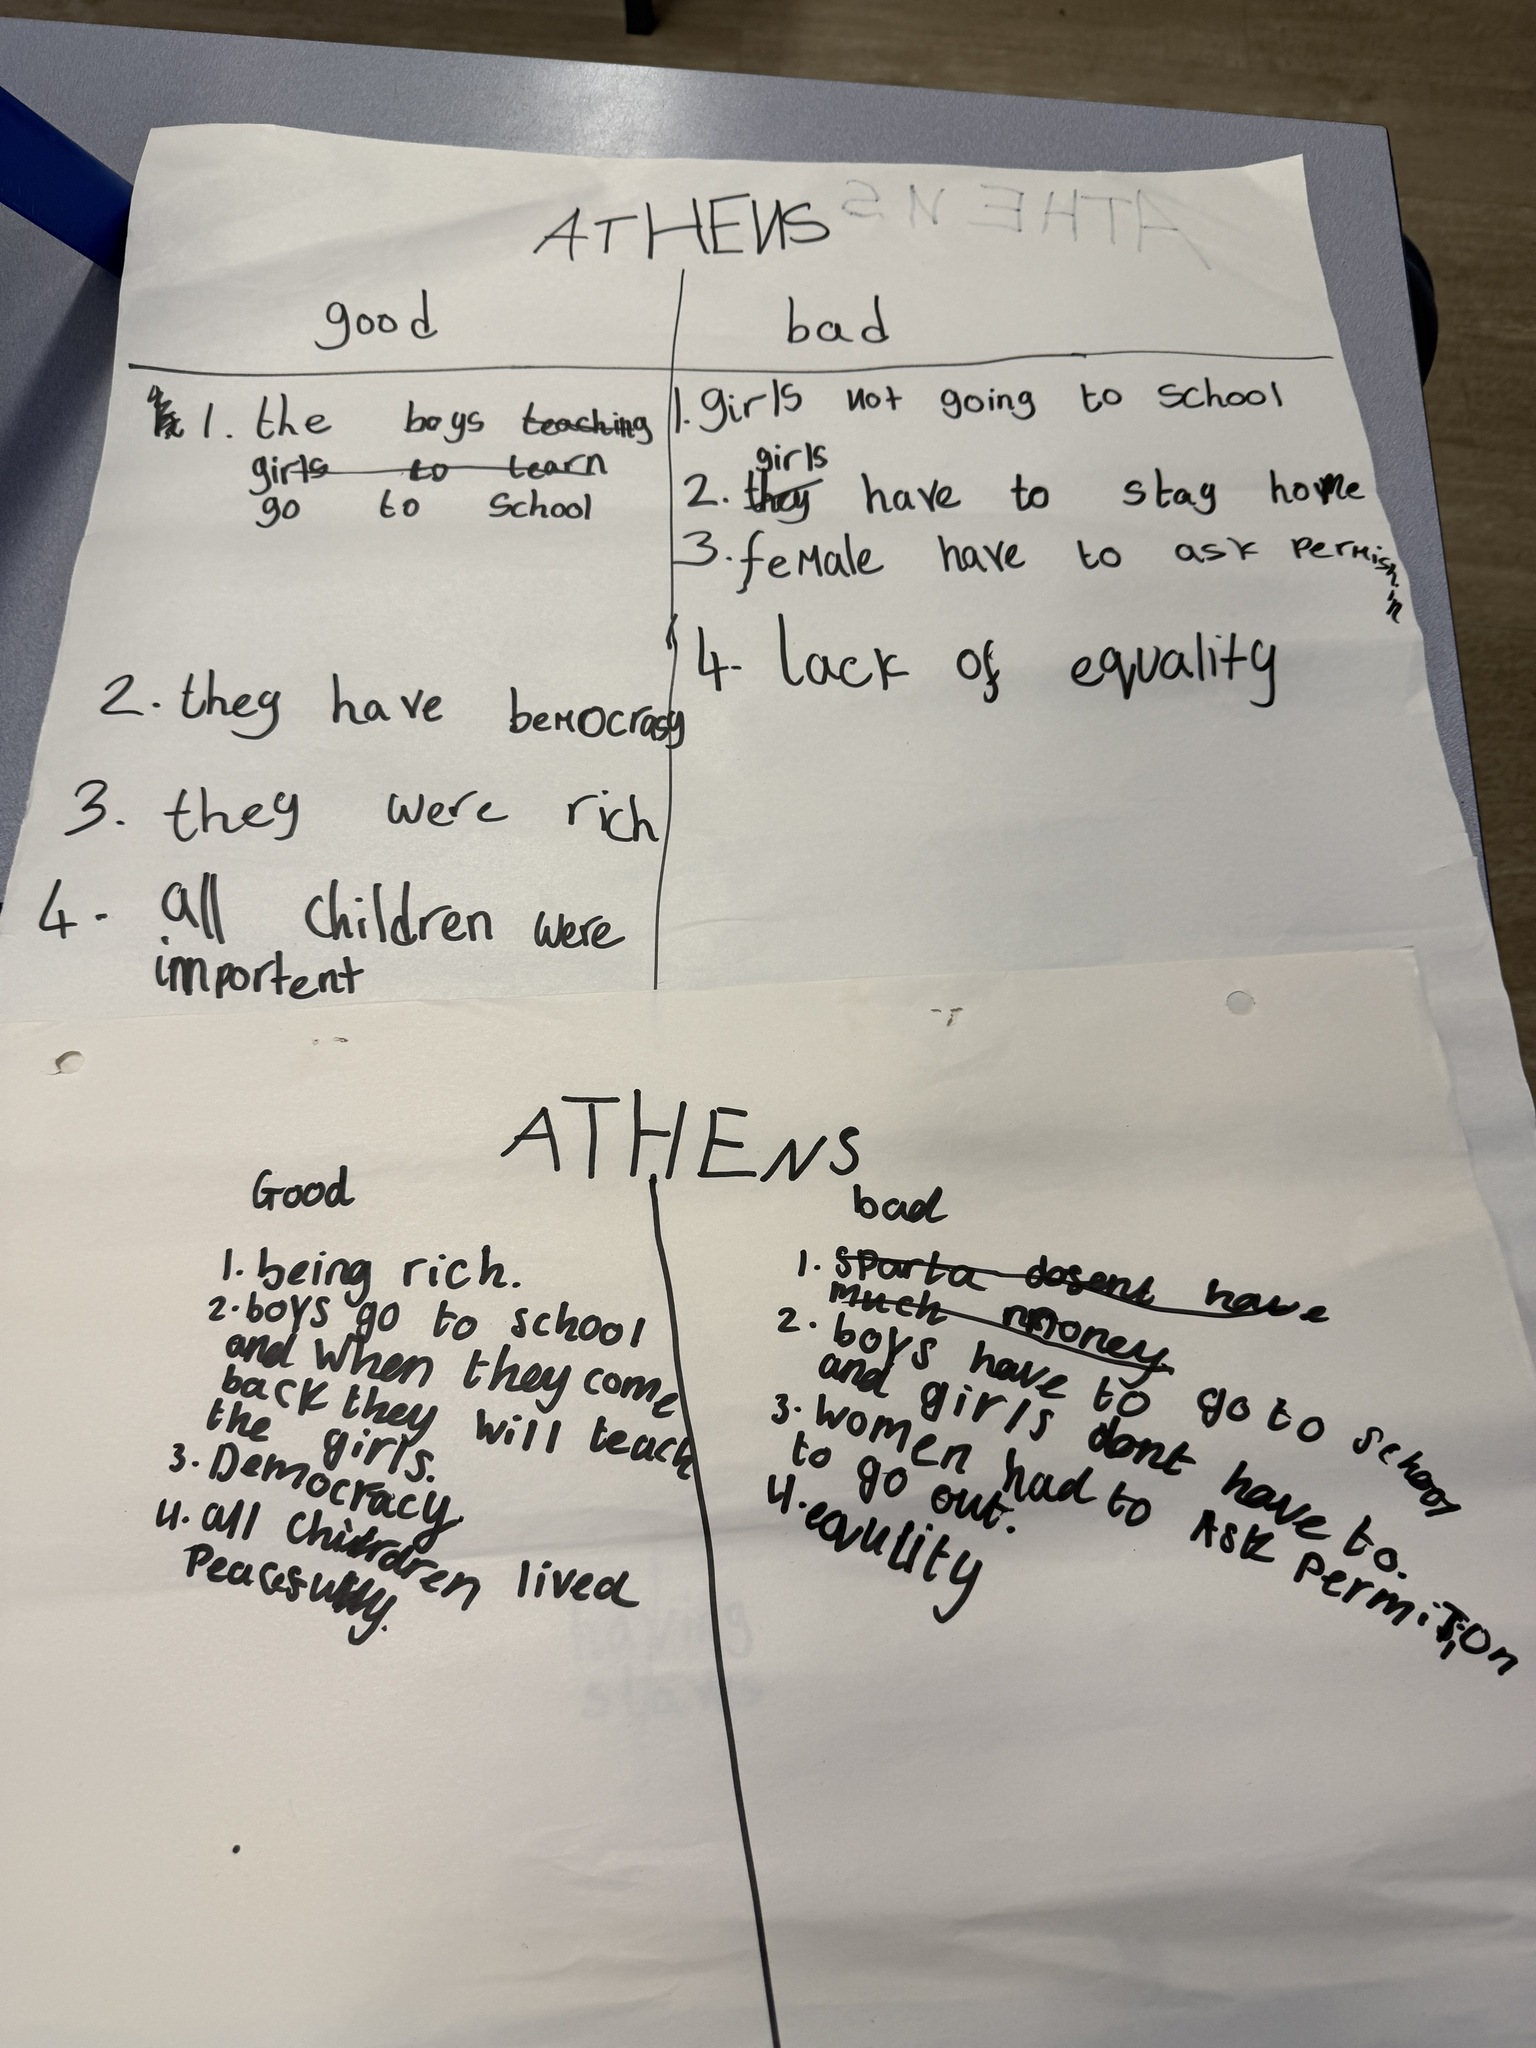 ATHENS ATHENS
good
bad
1. the boys teaching
girls to learn
go to school
2. they have bemocrasy
3. they were rich
4- all children were
importent
1. girls not going to school
girls
2. they have to stay home
3. female have to ask permishin
4- lack of equality
ATHENS
Good
bad
1. being rich.
2. boys go to school
and when they come
back they will teach
the girls.
3. Democracy.
4. all children lived
Peacefully.
1. sparta dosent have
much money
2. boys have to go to school
and girls dont have to.
3. women had to Ask permission
to go out.
4. equlity
having